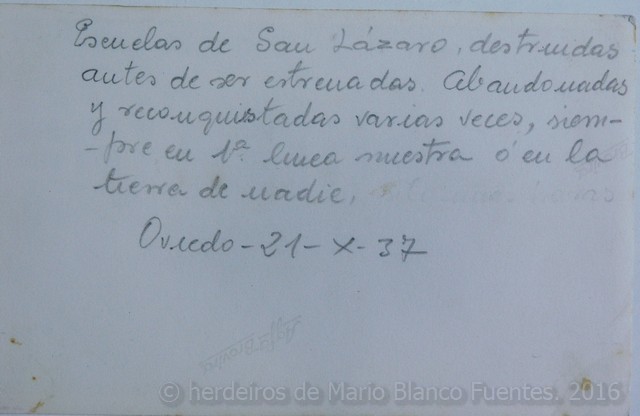 Escuelas de San Lázaro, destruidas
antes de ser estrenadas. Abandonadas
y reconquistadas varias veces, siem-
-pre en 1ª linea nuestra ó en la
tierra de nadie,
Oviedo - 21 - X - 37
© herdeiros de Mario Blanco Fuentes. 2016